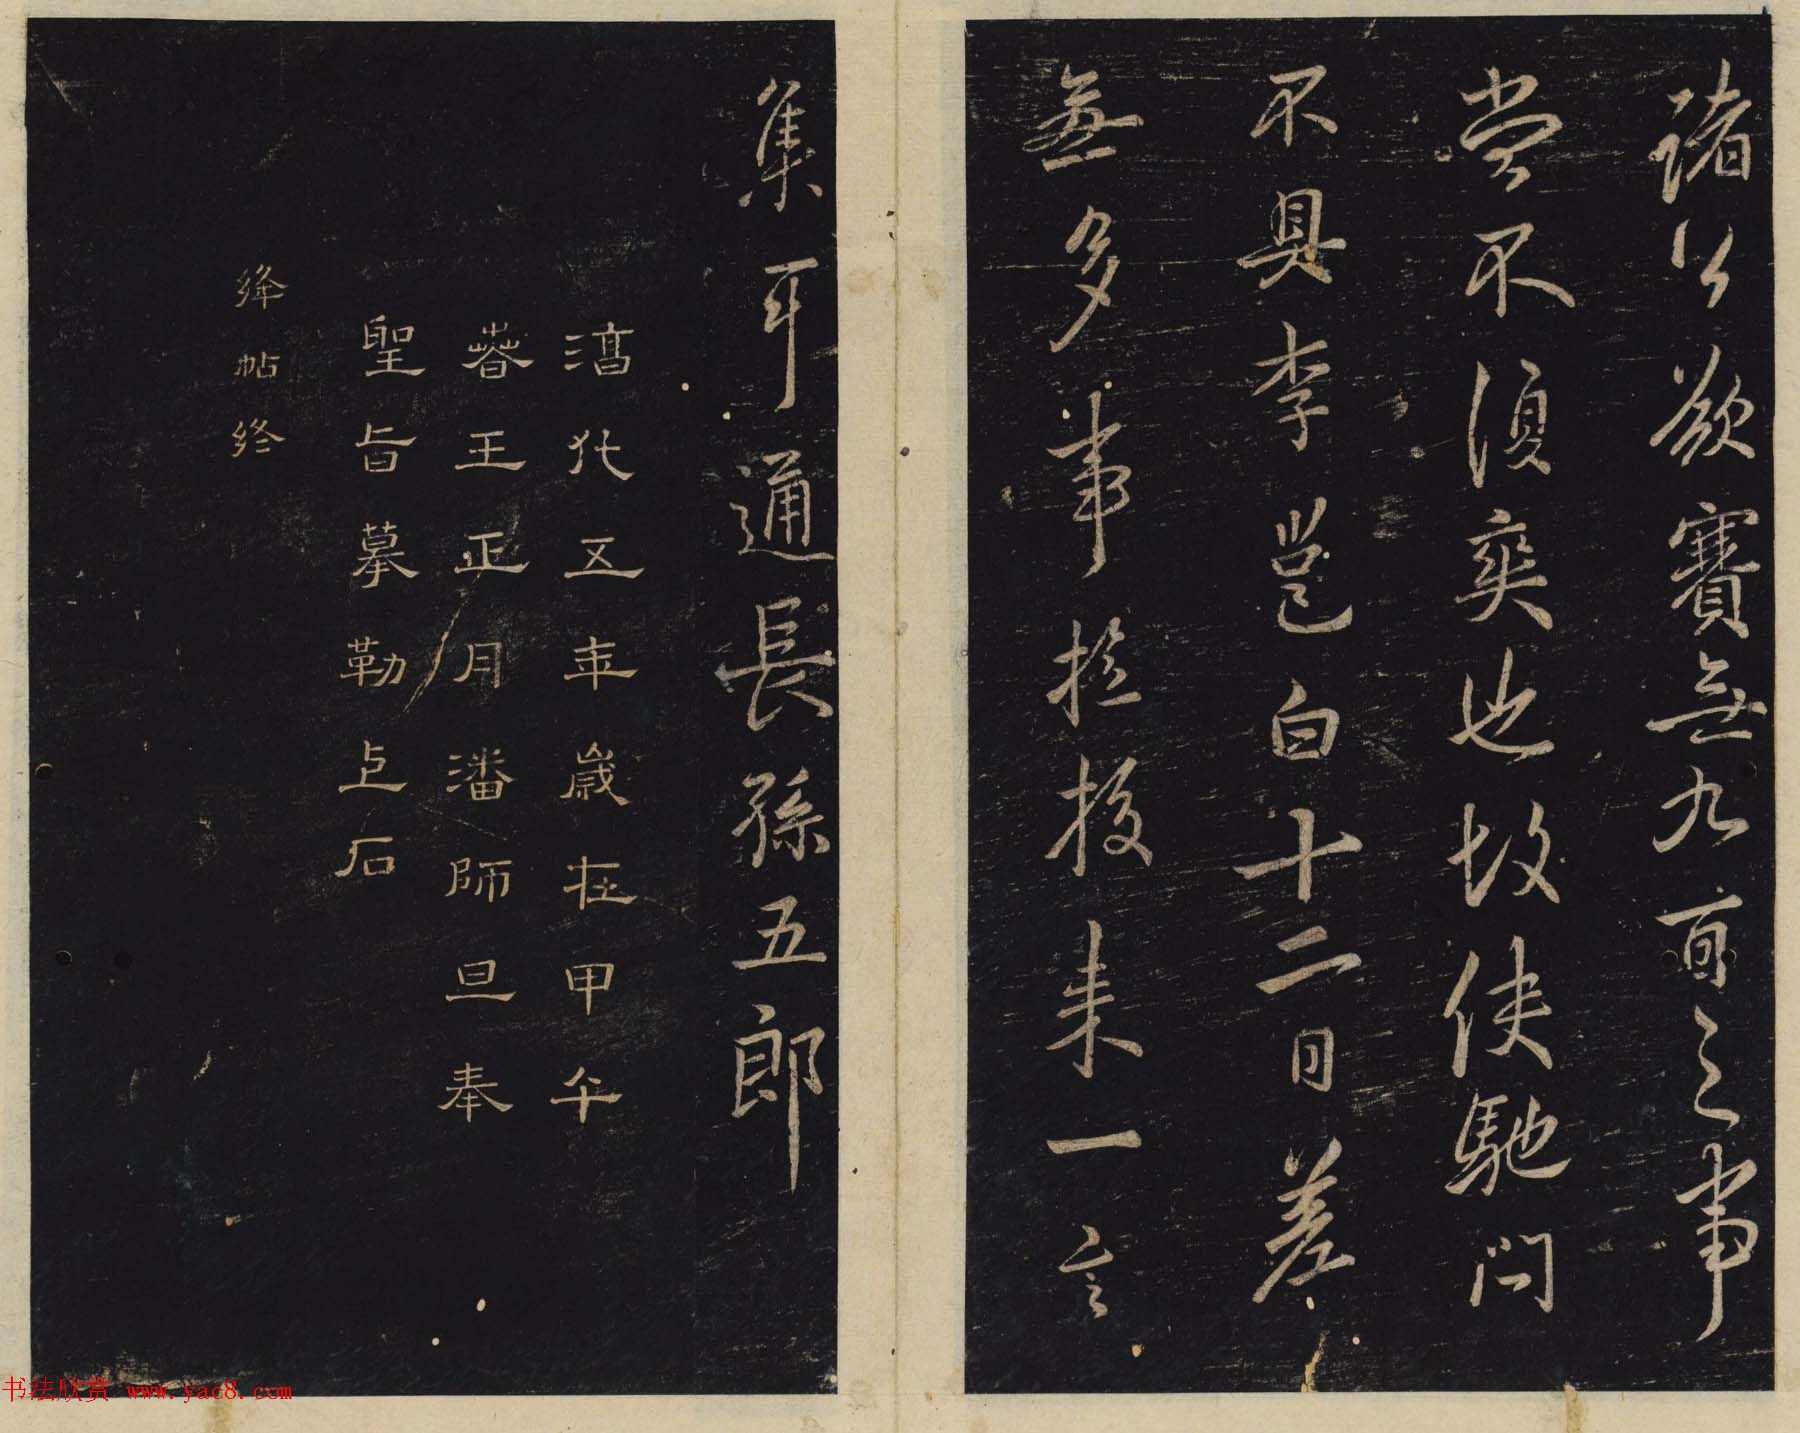 諸公欲賽無九百之事
當不須爽也故使馳問
不具李邕白十二日差
無多事於投來一言
集耳通長孫五郎
淳化五年歲在甲午
春王正月潘師旦奉
聖旨摹勒上石
絳帖終
书法欣赏 www.yac8.com